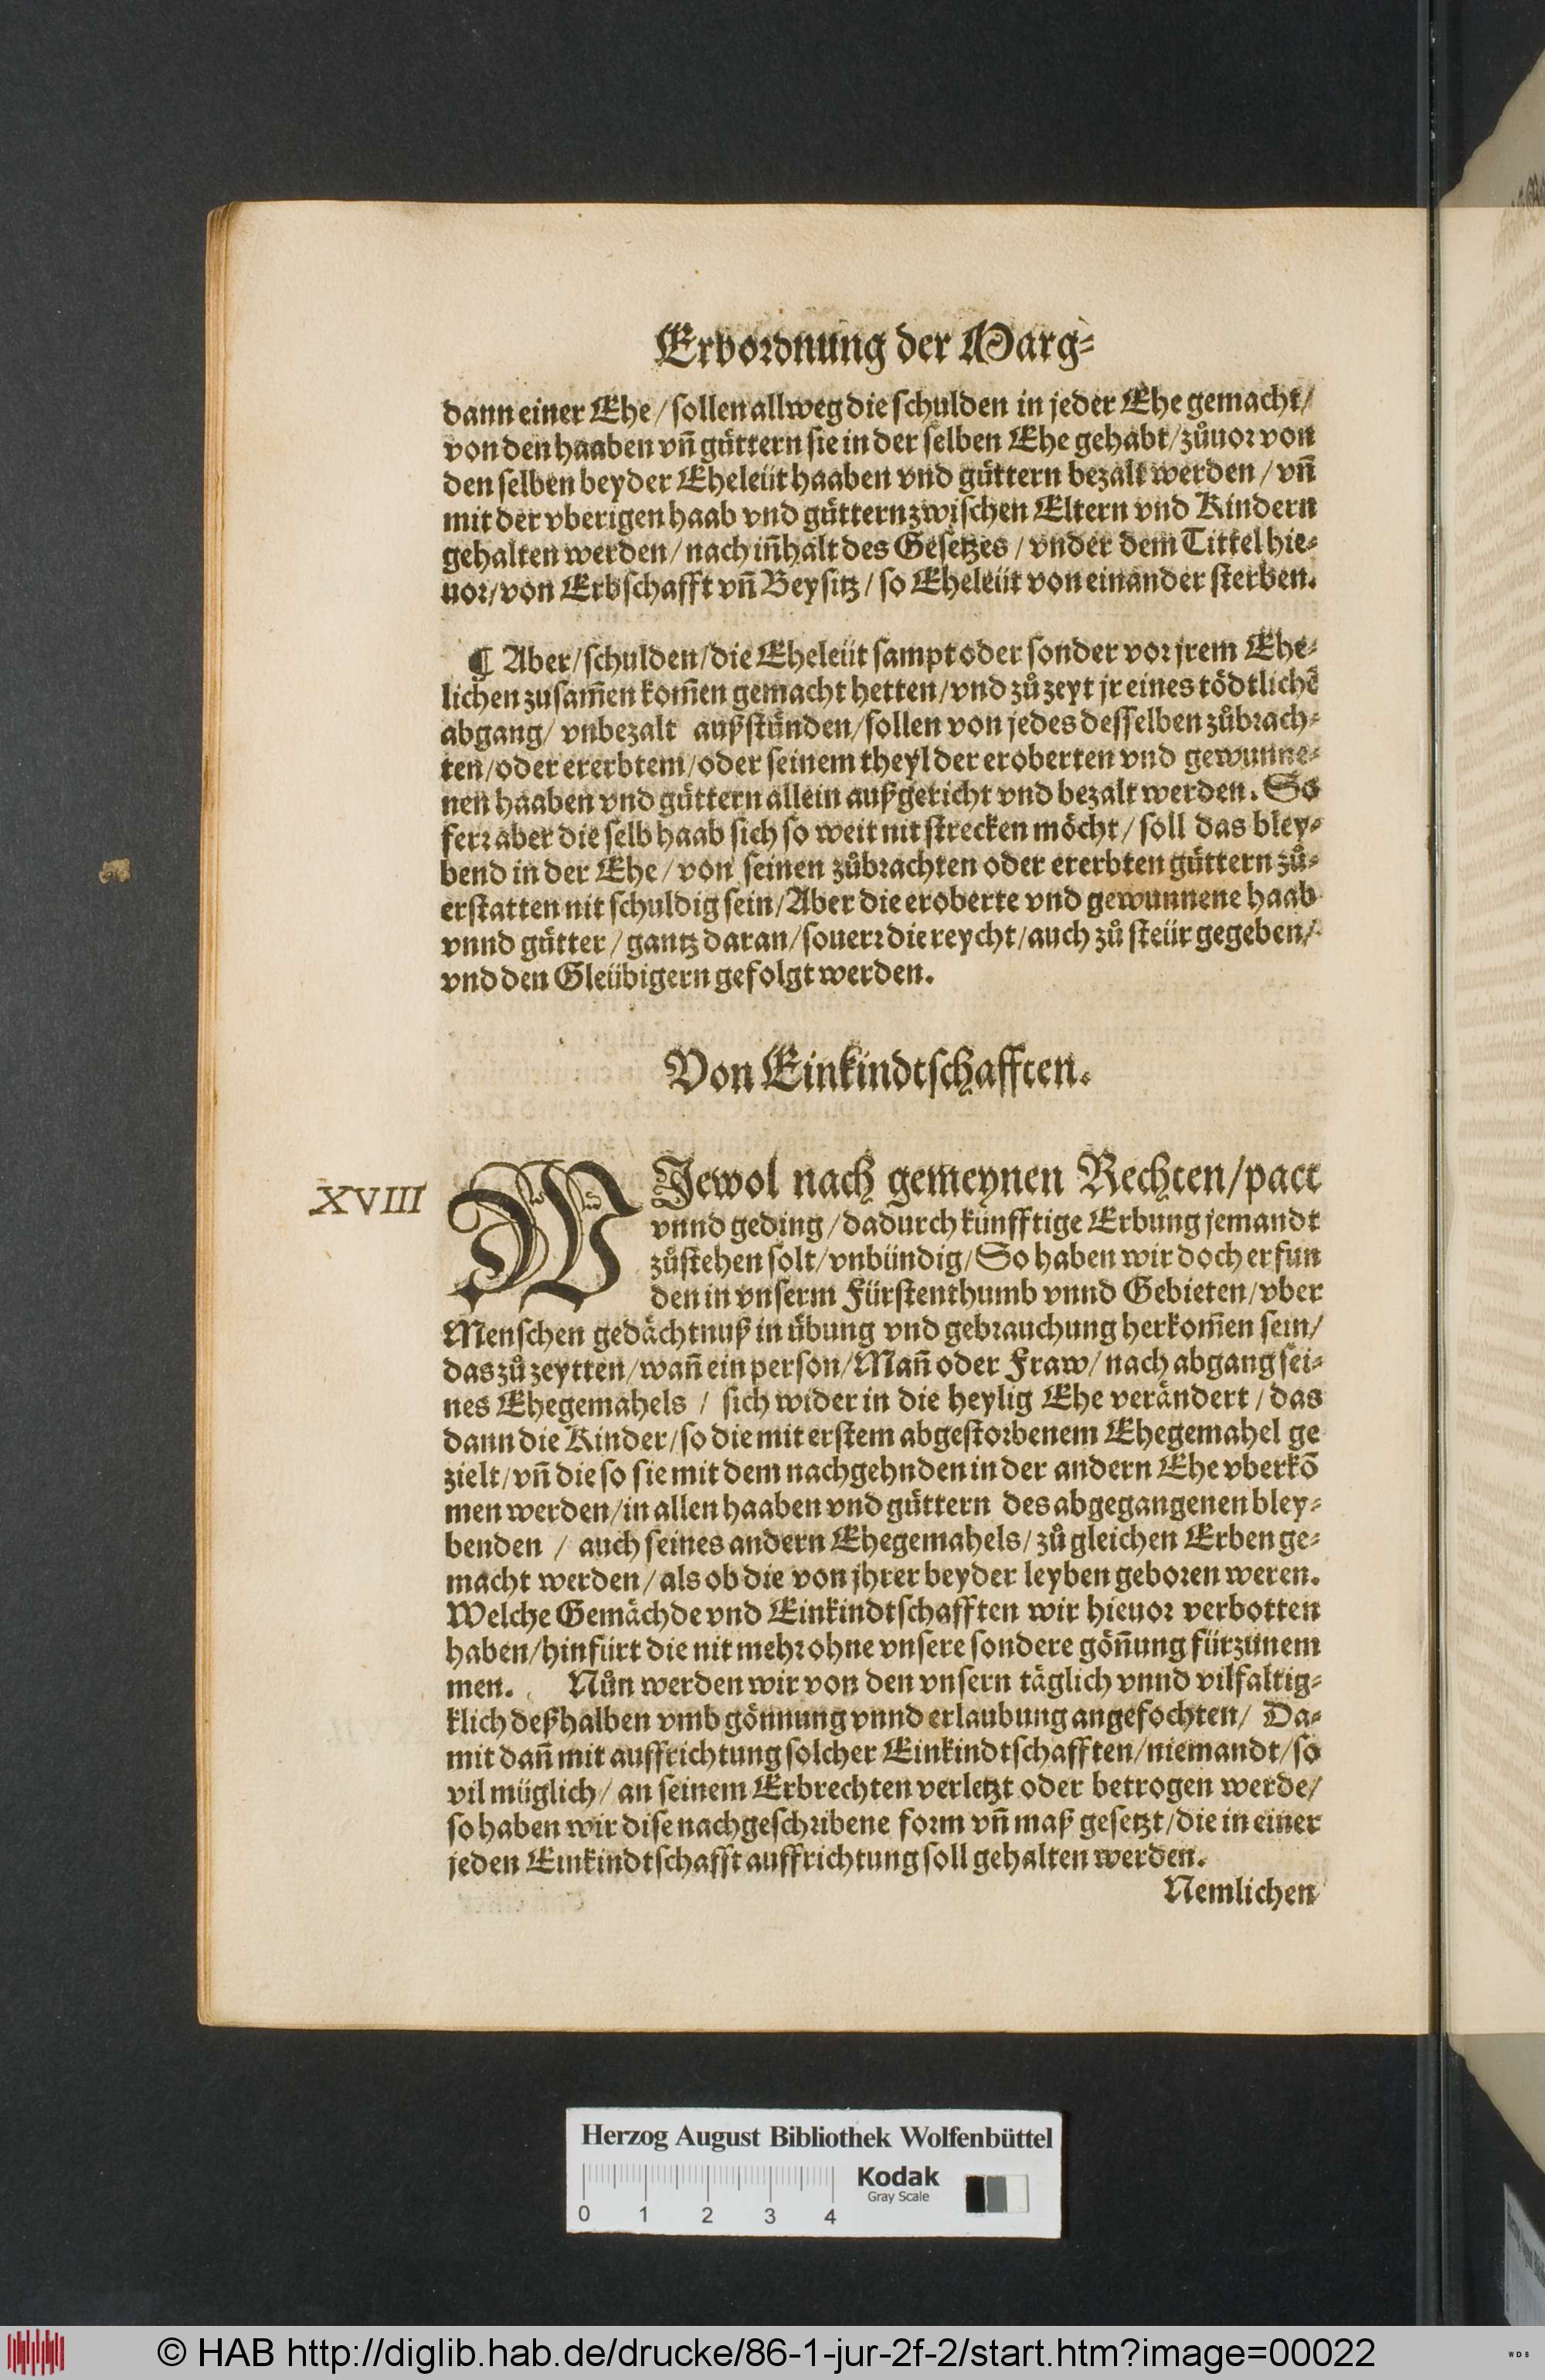 Erbordnung der Marg⸗
dann einer Ehe / sollen allweg die schulden in jeder Ehe gemacht /
von den haaben vn̄ güttern sie in der selben Ehe gehabt / zůuor von
den selben beyder Eheleüt haaben vnd güttern bezalt werden / vn̄
mit der vberigen haab vnd güttern zwischen Eltern vnd Kindern
gehalten werden / nach in̄halt des Gesetzes / vnder dem Tittel hie⸗
uor / von Erbschafft vn̄ Beysitz / so Eheleüt von einander sterben.
¶ Aber / schulden / die Eheleüt sampt oder sonder vor jrem Ehe⸗
lichen zusam̄en kom̄en gemacht hetten / vnd zů zeyt jr eines tödtlichē
abgang / vnbezalt außstünden / sollen von jedes desselben zůbrach⸗
ten / oder ererbtem / oder seinem theyl der eroberten vnd gewunne⸗
nen haaben vnd güttern allein außgericht vnd bezalt werden. So
ferr aber die selb haab sich so weit nit strecken möcht / soll das bley⸗
bend in der Ehe / von seinen zůbrachten oder ererbten güttern zů⸗
erstatten nit schuldig sein / Aber die eroberte vnd gewunnene haab
vnnd gütter / gantz daran / souerr die reycht / auch zů steür gegeben /
vnd den Gleübigern gefolgt werden.
Von Einkindtschafften.
XVIII
WJewol nach gemeynen Rechten / pact
vnnd geding / dadurch künfftige Erbung jemandt
zůstehen solt / vnbündig / So haben wir doch erfun
den in vnserm Fürstenthumb vnnd Gebieten / vber
Menschen gedächtnuß in übung vnd gebrauchung herkom̄en sein /
das zů zeytten / wan̄ ein person / Man̄ oder Fraw / nach abgang sei⸗
nes Ehegemahels / sich wider in die heylig Ehe verändert / das
dann die Kinder / so die mit erstem abgestorbenem Ehegemahel ge
zielt / vn̄ die so sie mit dem nachgehnden in der andern Ehe vberkō
men werden / in allen haaben vnd güttern des abgegangenen bley⸗
benden / auch seines andern Ehegemahels / zů gleichen Erben ge⸗
macht werden / als ob die von jhrer beyder leyben geboren weren.
Welche Gemächde vnd Einkindtschafften wir hieuor verbotten
haben / hinfürt die nit mehr ohne vnsere sondere gön̄ung fürzunem
men. Nůn werden wir von den vnsern täglich vnnd vilfaltig⸗
klich deßhalben vmb gönnung vnnd erlaubung angefochten / Da⸗
mit dan̄ mit auffrichtung solcher Einkindtschafften / niemandt / so
vil müglich / an seinem Erbrechten verletzt oder betrogen werde /
so haben wir dise nachgeschribene form vn̄ maß gesetzt / die in einer
jeden Einkindtschafft auffrichtung soll gehalten werden.
Nemlichen
Herzog August Bibliothek Wolfenbüttel
Kodak
Gray Scale
0 1 2 3 4
© HAB http://diglib.hab.de/drucke/86-1-jur-2f-2/start.htm?image=00022